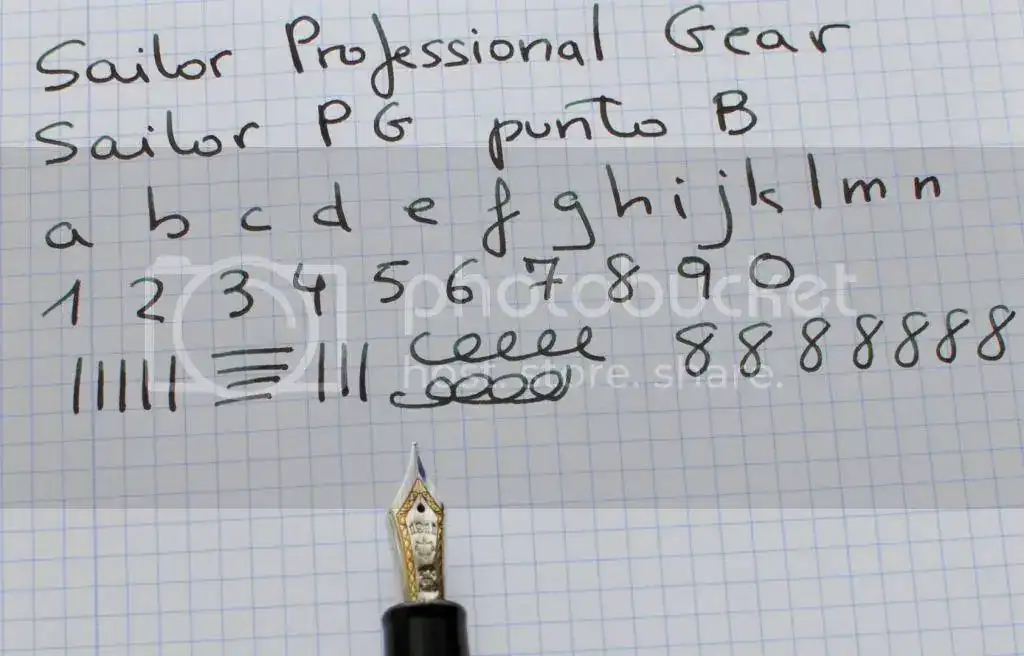 Sailor Professional Gear
Sailor PG punto B
a b c d e f g h i j k l m n
1 2 3 4 5 6 7 8 9 0
8 8 8 8 8 8 8
photobucket
host. store. share.